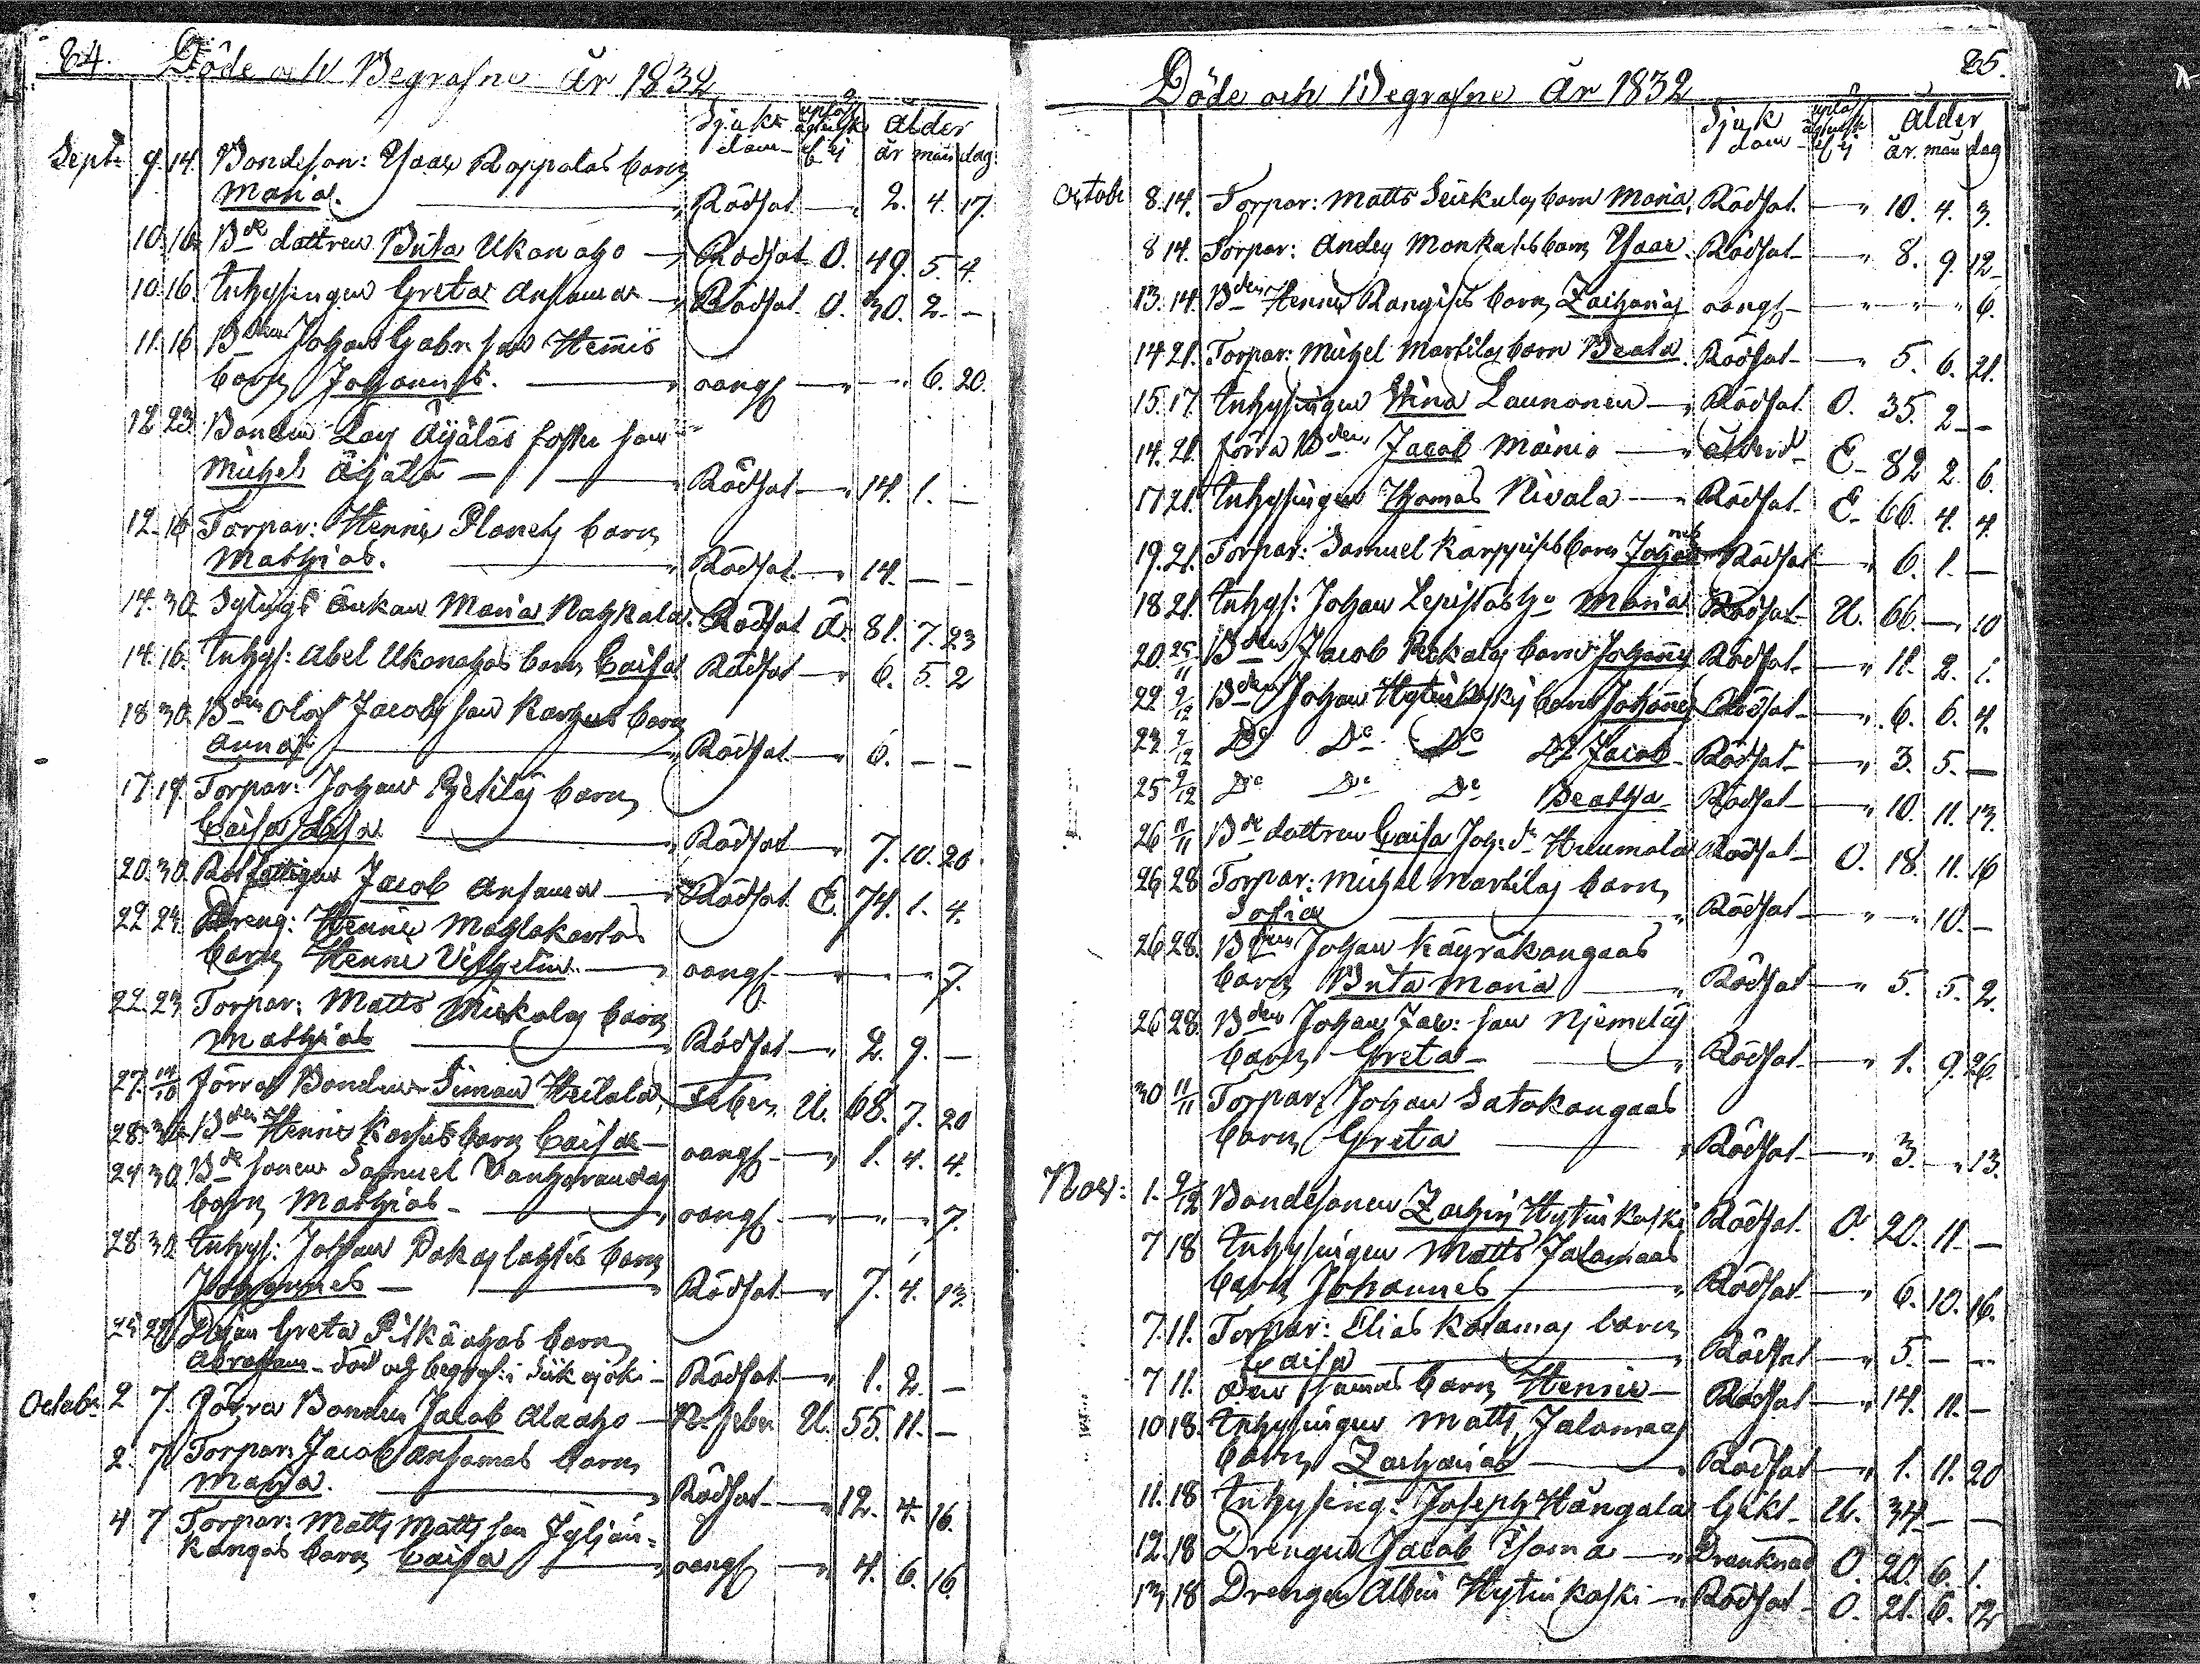 64. Döde och Begrafne år 1832
Sjuk dom ålder
år mån dag
Sept. 9. 14. Bondeson: Isaac Rappalas barn
Maria. Rödsot 2. 4. 17.
10. 16. Bde dottren Brita Ukonaho Rödsot O. 49. 5. 4
10. 16. Inhysingen Greta Ansama Rödsot O. 30. 2. –
11. 16 Bden Johan Gabr. son Hemis
barn Johannes. oangf 6. 20.
12 23 Bonden Lars Äijäläs foster son
Michel Äijälä Rödsot 14. 1. –
12. 16 Torpar: Henric Planets barn
Mathias. Rödsot 14. – –
14. 30 Sytnings Änkan Maria Rahkala Rödsot Ä. 81. 7. 23
14. 16. Inhys: Abel Ukonahos barn Caisa Rödsot 6. 5. 2
18 30. Bden Olof Jacobs son Karhus barn
Anna Rödsot 6. – –
17. 19. Torpar: Johan Pietiläs barn
Caisa Lisa Rödsot 7. 10. 20.
20. 30. Rotfattigen Jacob Ansama Rödsot E. 74. 1. 4.
22 23. Dreng: Henric Mahlakartos
barn Henric Vilhelm oangf 7.
22. 23 Torpar: Matts Niskalas barn
Mathias Rödsot 2. 9. –
27. 14/10 Förra Bonden Simon Heilala Feber U. 68. 7. 20
28. 30. Bden Henric Karhus barn Caisa oangf 1. 4. 4.
24 30. Bde sonen Samuel Vanharandas
barn Mathias oangf 7.
28. 30. Inhys: Johan Pokaslahtis barn
Johannes Rödsot 7. 4. 13.
Pigan Greta Pitkäahos barn
Abraham död och begrafd i Siikajoki Rödsot 1. 2. –
Octobr 2 7. Förra Bonden Jacob Alaaho N. feber U. 55. 11. –
2. 7 Torpar: Jacob Ansamas barn
Maria. Rödsot 12. 4. 16.
4 7 Torpar: Matts Mattsson Jyljän-
kangas barn Caisa oangf 4. 6. 16.
Döde och Begrafne År 1832 65.
Sjuk dom ålder
år. mån dag
Octobr 8. 14. Torpar: Matts Seikulas barn Maria. Rödsot 10. 4. 3.
8 14. Torpar: Anders Monkatis barn Isaac. Rödsot 8. 9. 12
13. 14. Bden Henric Kangiss barn Zacharias oangf 6.
14 21. Torpar: Michel Martilas barn Beata. Rödsot 5. 6. 21.
15. 17. Inhysingen Stina Launonen Rödsot O. 35. 2 –
14. 21. förra Bden Jacob Mäinio ålderd. E. 82 2. 6.
17 21. Inhysingen Thomas Nivala Rödsot E. 66. 4. 4
19. 21. Torpar: Samuel Karppinens barn Johannes Rödsot 6. 1. –
18 21. Inhys: Johan Lepistös hu Maria Rödsot U. 66. – 10
20. 25/11 Bden Jacob Rekalas barn Johannes Rödsot 11. 2. 1.
22 2/12 Bden Johan Hytinkoskis barn Johannes Rödsot 6. 6. 4.
23 2/12 Do Do Do Do Jacob Rödsot 3. 5. –
25 2/12 Do Do Do Beatha Rödsot 10. 11. 13.
26 11/11 Bde dottren Caisa Joh: dr Huumala Rödsot O. 18. 11. 16
26 28. Torpar: Michel Martilas barn
Sofia Rödsot 10. –
26. 28. Bden Johan Käyräkangaas
barn Brita Maria Rödsot 5. 5. 2.
26 28. Bden Johan Jac: son Niemeläs
barn Greta Rödsot 1. 9. 26.
30 11/11 Torpar: Johan Satokangaas
barn Greta Rödsot 3. – 13.
Nov: 1. 2/12 Bondesonen Zachris Hytinkoski Rödsot O. 20. 11. –
7 18 Inhysingen Matts Jalamaas
barn Johannes Rödsot 6. 10. 16.
7. 11. Torpar: Elias Kotamas barn
Caisa Rödsot 5. – –
7 11. den samas barn Henric Rödsot 14. 11. –
10 18. Inhysingen Matts Jalomaas
barn Zacharias Rödsot 1. 11. 20
11. 18 Inhysing: Joseph Hängala Gikt U. 34 – –
12. 18 Drengen Jacob Isoma Dranknad O. 20. 6. 1.
13 18 Drengen Albin Hytinkoski Rödsot O. 21. 6. 12